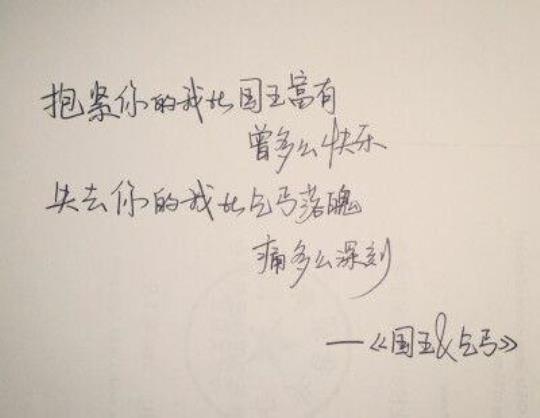 抱紧你的我比国王富有
曾多么快乐
失去你的我比乞丐落魄
痛多么深刻
—《国王&乞丐》